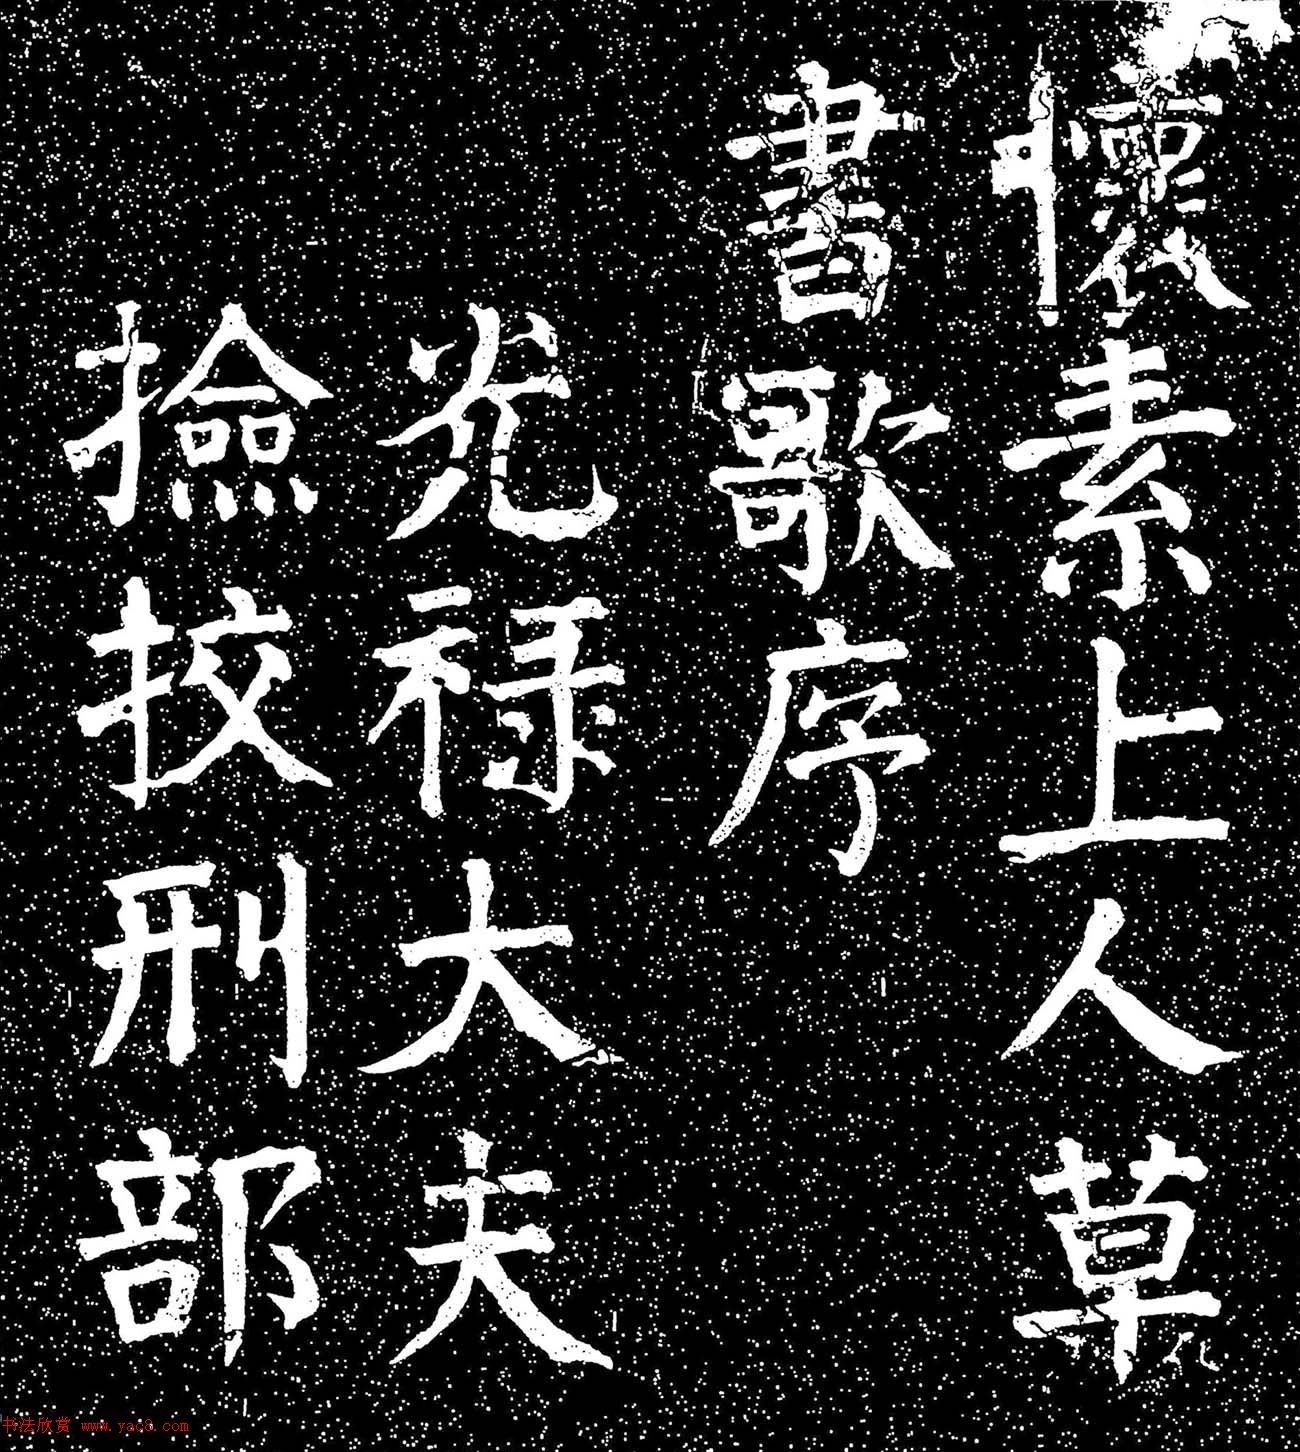 懷素上人草
書歌序
光禄大夫
撿挍刑部
书法欣赏 www.yac8.com